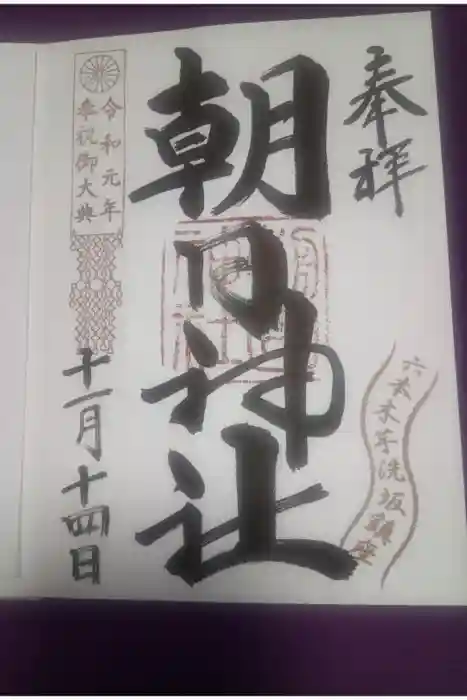 奉拝
六本木芋洗坂鎮座
朝日神社
朝日
神社
令和元年
奉祝御大典
十一月十四日